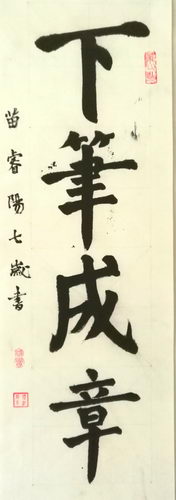 下筆成章
苗睿陽七歲書